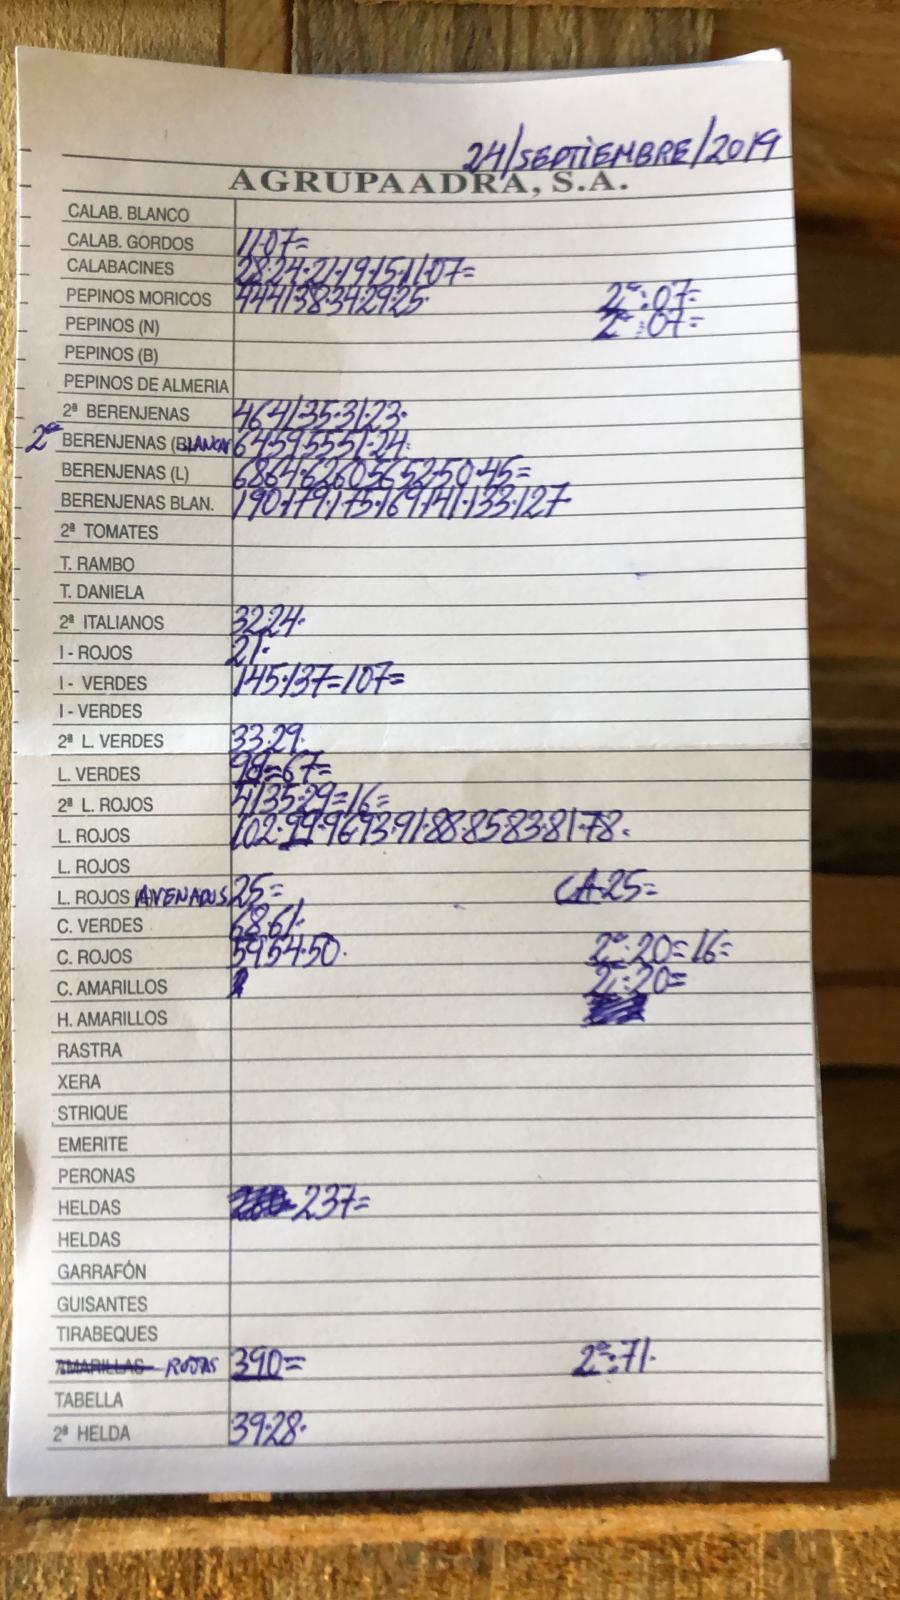 24/SEPTIEMBRE/2019
AGRUPAADRA, S.A.
CALAB. BLANCO
CALAB. GORDOS 11·07=
CALABACINES 28·24·21·19·15·11·07=
PEPINOS MORICOS 44·41·38·34·29·25· 2ª:07=
PEPINOS (N) 2ª:07=
PEPINOS (B)
PEPINOS DE ALMERIA
2ª BERENJENAS 46·41·35·31·23·
2ª BERENJENAS (BLANCAS 64·59·55·51·24·
BERENJENAS (L) 68·64·62·60·56·52·50·45=
BERENJENAS BLAN. 190·179·175·169·141·133·127
2ª TOMATES
T. RAMBO
T. DANIELA
2ª ITALIANOS 32·24·
I - ROJOS 21·
I - VERDES 145·137=107=
I - VERDES
2ª L. VERDES 33·29·
L. VERDES 98=67=
2ª L. ROJOS 41·35·29=16=
L. ROJOS 102·99·96·93·91·88·85·83·81·78·
L. ROJOS
L. ROJOS AVENADOS 25= CA·25=
C. VERDES 68·61·
C. ROJOS 59·54·50· 2ª:20=16=
C. AMARILLOS 2ª:20=
H. AMARILLOS
RASTRA
XERA
STRIQUE
EMERITE
PERONAS
HELDAS 237=
HELDAS
GARRAFÓN
GUISANTES
TIRABEQUES
AMARILLAS ROJAS 390= 2ª:71·
TABELLA
2ª HELDA 39·28·